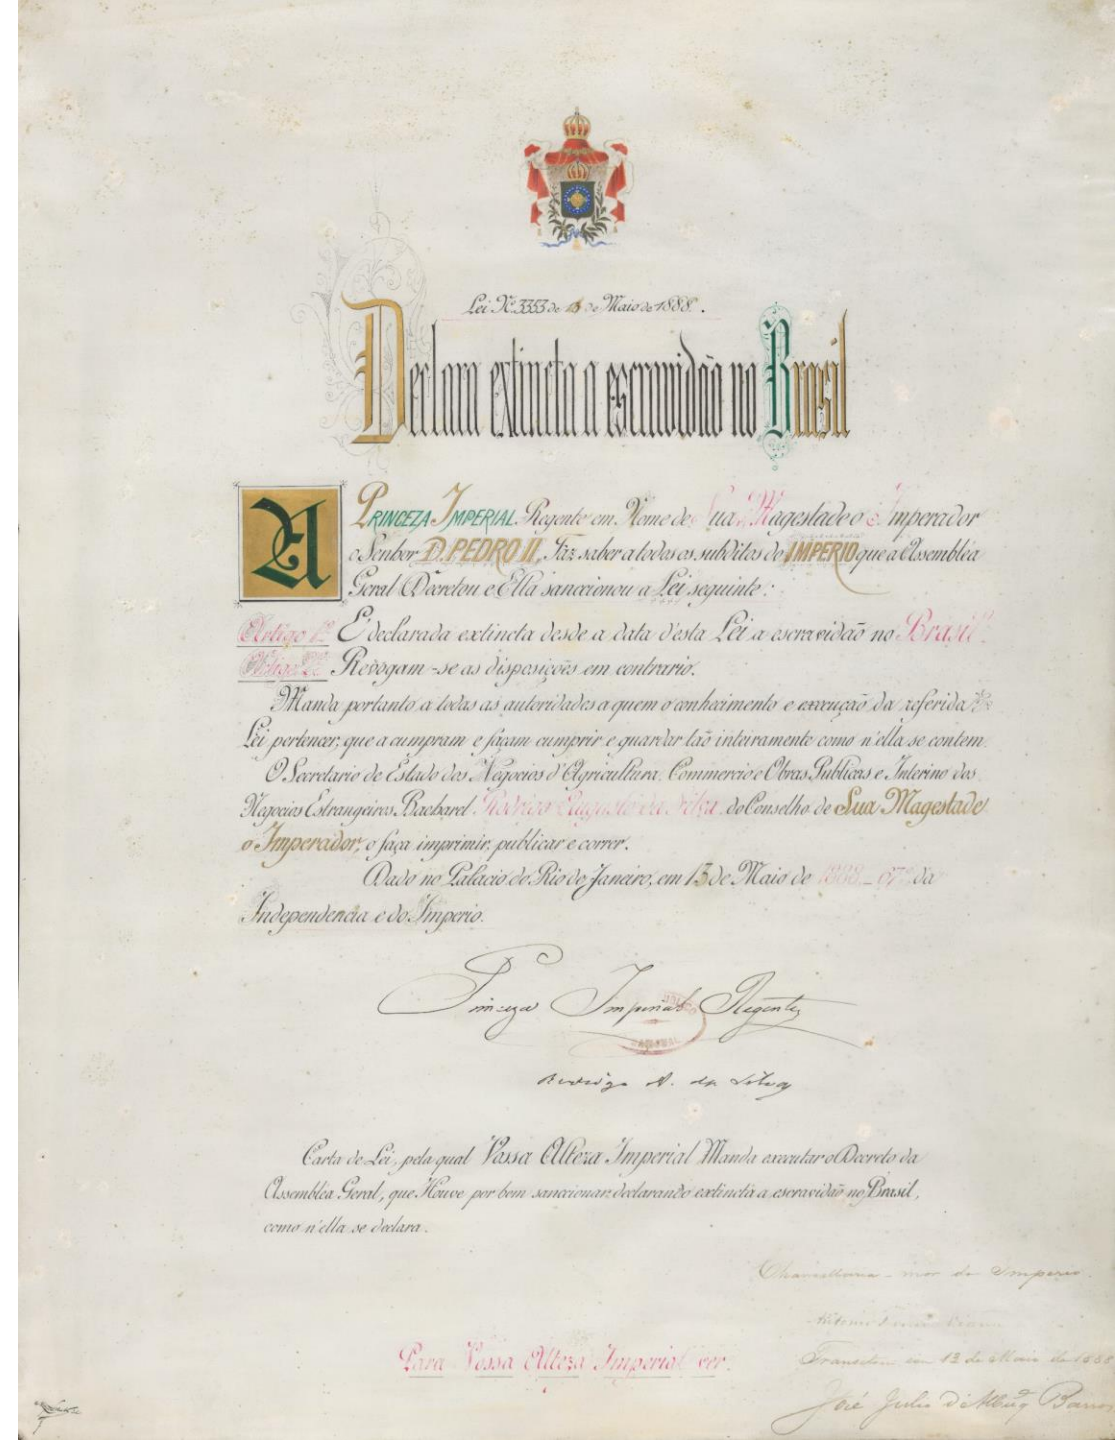 Lei Nº 3353 de 13 de Maio de 1888.
Declara extincta a escravidão no Brasil
A PRINCEZA IMPERIAL Regente em Nome de Sua Magestade o Imperador
o Senhor D. PEDRO II, Faz saber a todos os subditos do IMPERIO que a Assembléa
Geral Decretou e Ella sanccionou a Lei seguinte:
Artigo 1º É declarada extincta desde a data d'esta Lei a escravidão no Brasil.
Artigo 2º Revogam-se as disposições em contrario.
Manda portanto a todas as autoridades a quem o conhecimento e execução da referida
Lei pertencer, que a cumpram e façam cumprir e guardar tão inteiramente como n'ella se contem.
O Secretario de Estado dos Negocios d'Agricultura, Commercio e Obras Publicas e Interino dos
Negocios Estrangeiros Bacharel Rodrigo Augusto da Silva, do Conselho de Sua Magestade
o Imperador, o faça imprimir, publicar e correr.
Dado no Palacio do Rio de Janeiro, em 13 de Maio de 1888_67º da
Independencia e do Imperio.
Princeza Imperial Regente
Rodrigo A. da Silva
Carta de Lei, pela qual Vossa Alteza Imperial Manda executar o Decreto da
Assembléa Geral, que Houve por bem sanccionar, declarando extincta a escravidão no Brasil,
como n'ella se declara.
Chancellaria-mor do Imperio.
Transitou em 13 de Maio de 1888
Para Vossa Alteza Imperial ver.
José Julio d'Albuqº Barros